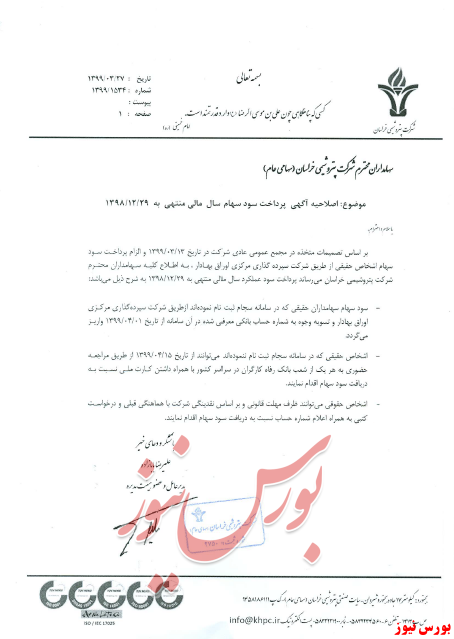 بسمه تعالی
تاریخ : ۱۳۹۹/۰۳/۲۷
شماره : ۱۳۹۹/۱۵۳۴
پیوست :
صفحه : ۱
کسی که پناهگاهی چون علی بن موسی الرضا دارد قدرتمند است.
امام خمینی
شرکت پتروشیمی خراسان
سهامداران محترم شرکت پتروشیمی خراسان (سهامی عام)
موضوع: اصلاحیه آگهی پرداخت سود سهام سال مالی منتهی به ۱۳۹۸/۱۲/۲۹
با سلام و احترام
بر اساس تصمیمات متخذه در مجمع عمومی عادی شرکت در تاریخ ۱۳۹۹/۰۳/۱۳ و الزام پرداخت سود
سهام اشخاص حقیقی از طریق شرکت سپرده گذاری مرکزی اوراق بهادار ، به اطلاع کلیه سهامداران محترم
شرکت پتروشیمی خراسان می‌رساند پرداخت سود عملکرد سال مالی منتهی به ۱۳۹۸/۱۲/۲۹ به شرح ذیل می‌باشد:
- سود سهام سهامداران حقیقی که در سامانه سجام ثبت نام نموده‌اند ازطریق شرکت سپرده‌گذاری مرکزی
اوراق بهادار و تسویه وجوه به شماره حساب بانکی معرفی شده در آن سامانه از تاریخ ۱۳۹۹/۰۴/۰۱ واریز
می‌گردد.
- اشخاص حقیقی که در سامانه سجام ثبت نام ننموده‌اند می‌توانند از تاریخ ۱۳۹۹/۰۴/۱۵ از طریق مراجعه
حضوری به هر یک از شعب بانک رفاه کارگران در سراسر کشور با همراه داشتن کارت ملی نسبت به
دریافت سود سهام اقدام نمایند.
- اشخاص حقوقی می‌توانند ظرف مهلت قانونی و بر اساس نقدینگی شرکت با هماهنگی قبلی و درخواست
کتبی به همراه اعلام شماره حساب نسبت به دریافت سود سهام اقدام نمایند.
با تشکر و دعای خیر
علیرضا
مدیرعامل و عضو هیئت مدیره
شرکت پتروشیمی خراسان (سهامی عام)
بورس نیوز
ISO / IEC 17025
info@khpc.ir
بورس نیوز